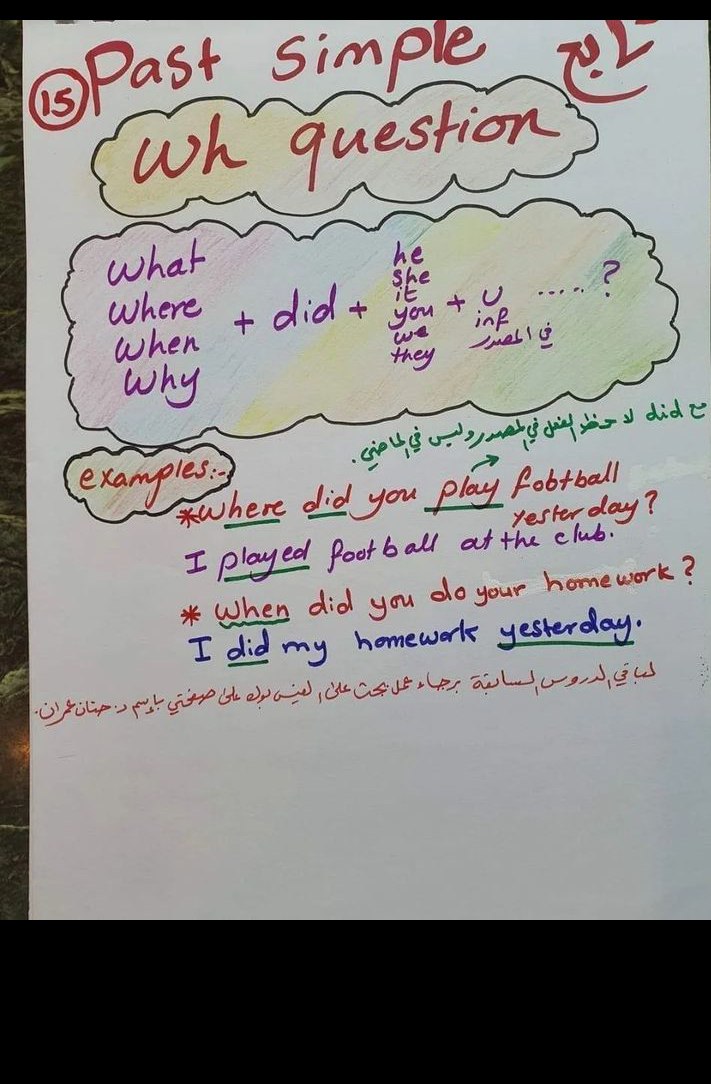 15 Past simple تابع
Wh question
What
Where
When
Why
+ did +
he
she
it
you
we
they
+ υ ..... ?
inf
في المصدر
مع did لاحظ الفعل في المصدر وليس في الماضي.
examples:-
*Where did you play football
yesterday?
I played football at the club.
* When did you do your homework?
I did my homework yesterday.
لباقي الدروس السابقة برجاء عمل بحث على الفيس بوك على صفحتي بإسم د. حنان عمران.